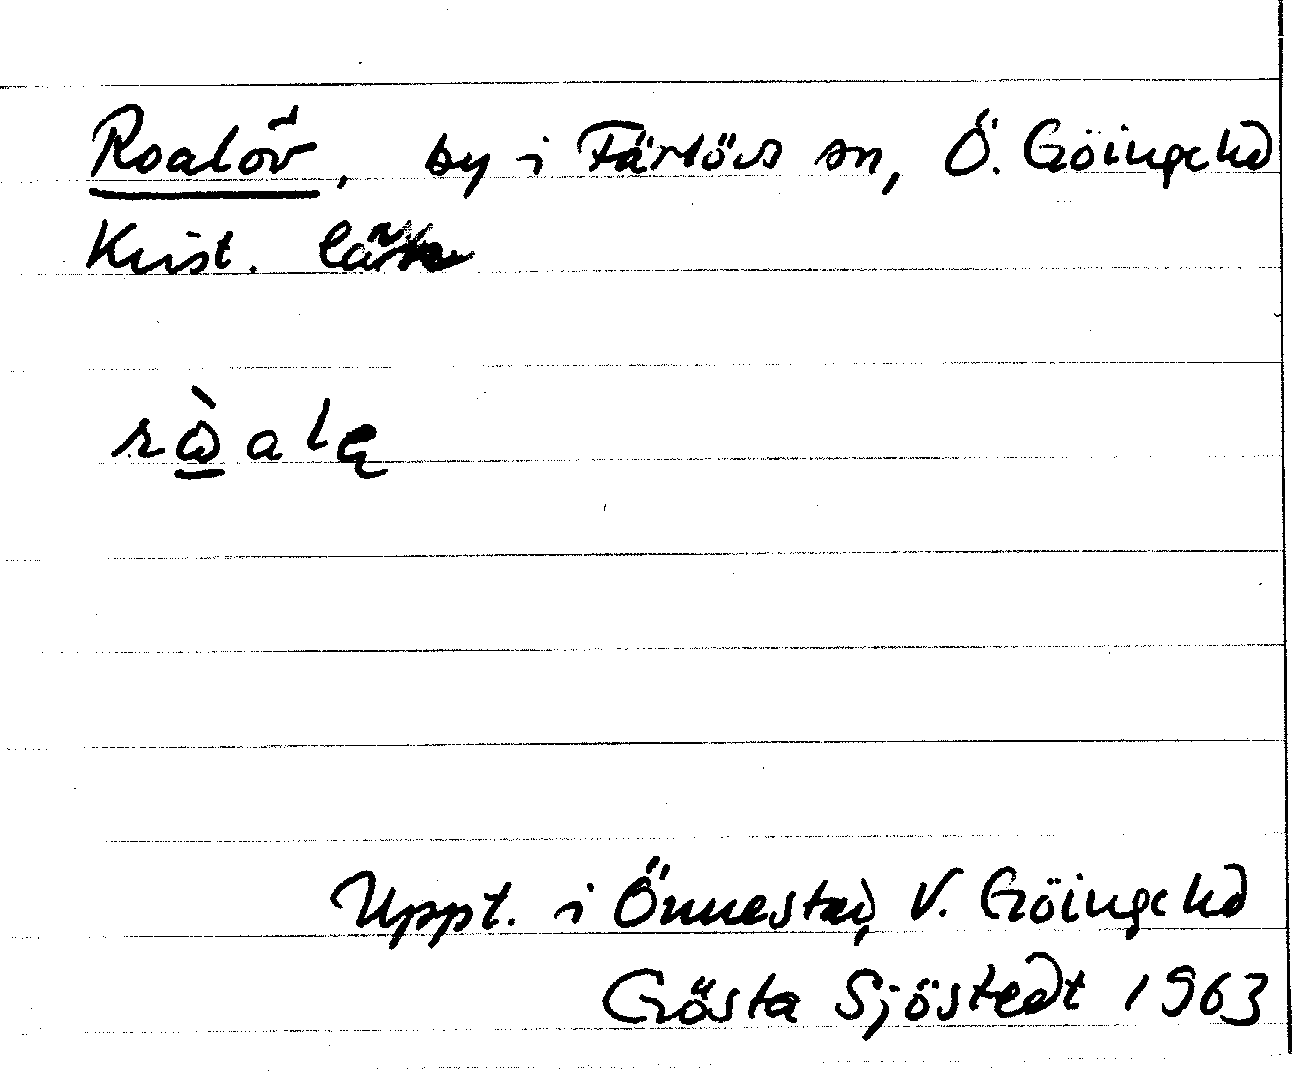 Roalöv, by i Färlövs sn, Ö. Göinge hd
Krist. län
Uppt. i Önnestad, V. Göinge hd
Gösta Sjöstedt 1963